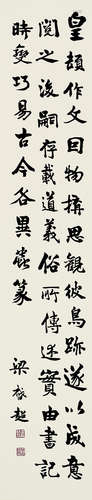 皇頡作文因物構思觀彼鳥跡遂以成意
閱之後嗣存載道義俗所傳述實由書記
時變巧易古今各異蟲篆
梁啟超